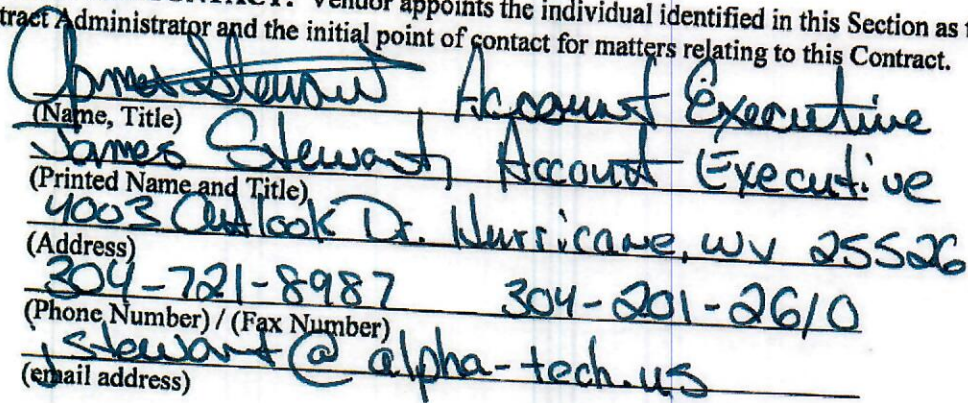 CONTACT: Vendor appoints the individual identified in this Section as
tract Administrator and the initial point of contact for matters relating to this Contract.
James Stewart Account Executive
(Name, Title)
James Stewart, Account Executive
(Printed Name and Title)
4003 Outlook Dr. Hurricane, WV 25526
(Address)
304-721-8987 304-201-2610
(Phone Number) / (Fax Number)
jstewart@alpha-tech.us
(email address)